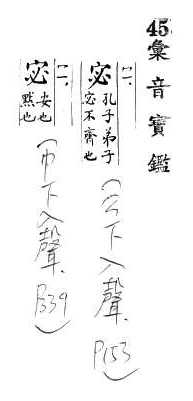 45.
彙音寶鑑
宓 孔子弟子
宓不齊也
(公下入聲. P153)
宓 安也
默也
(巾下入聲. P339)